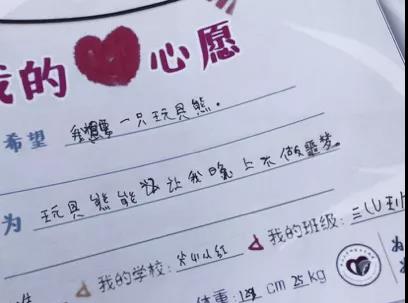 我的心愿
希望 我想要一只玩具熊。
为 玩具熊能够让我晚上不做噩梦。
我的学校: 我的班级: 三(4)班
体重: cm 25 kg